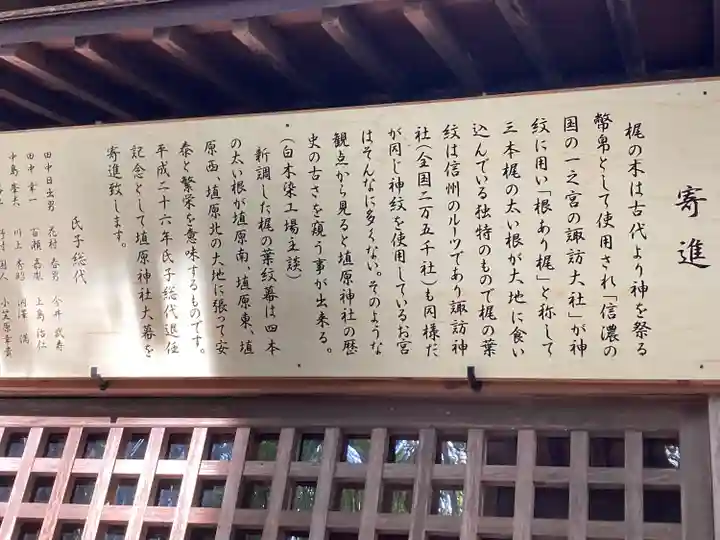 寄進
梶の木は古代より神を祭る
幣帛として使用され「信濃の
国の一之宮の諏訪大社」が神
紋に用い「根あり梶」と称して
三本梶の太い根が大地に食い
込んでいる独特のもので梶の葉
紋は信州のルーツであり諏訪神
社(全国二万五千社)も同様だ
が同じ神紋を使用しているお宮
はそんなに多くない。そのような
観点から見ると埴原神社の歴
史の古さを窺う事が出来る。
(白木染工場主談)
新調した梶の葉紋幕は四本
の太い根が埴原南、埴原東、埴
原西、埴原北の大地に張って安
泰と繁栄を意味するものです。
平成二十六年氏子総代退任
記念として埴原神社大幕を
寄進致します。
氏子総代
田中日出男 花村春男 今井武寿
田中幸一 百瀬 上島治仁
中島 川上秀昭 満
小笠原幸貴